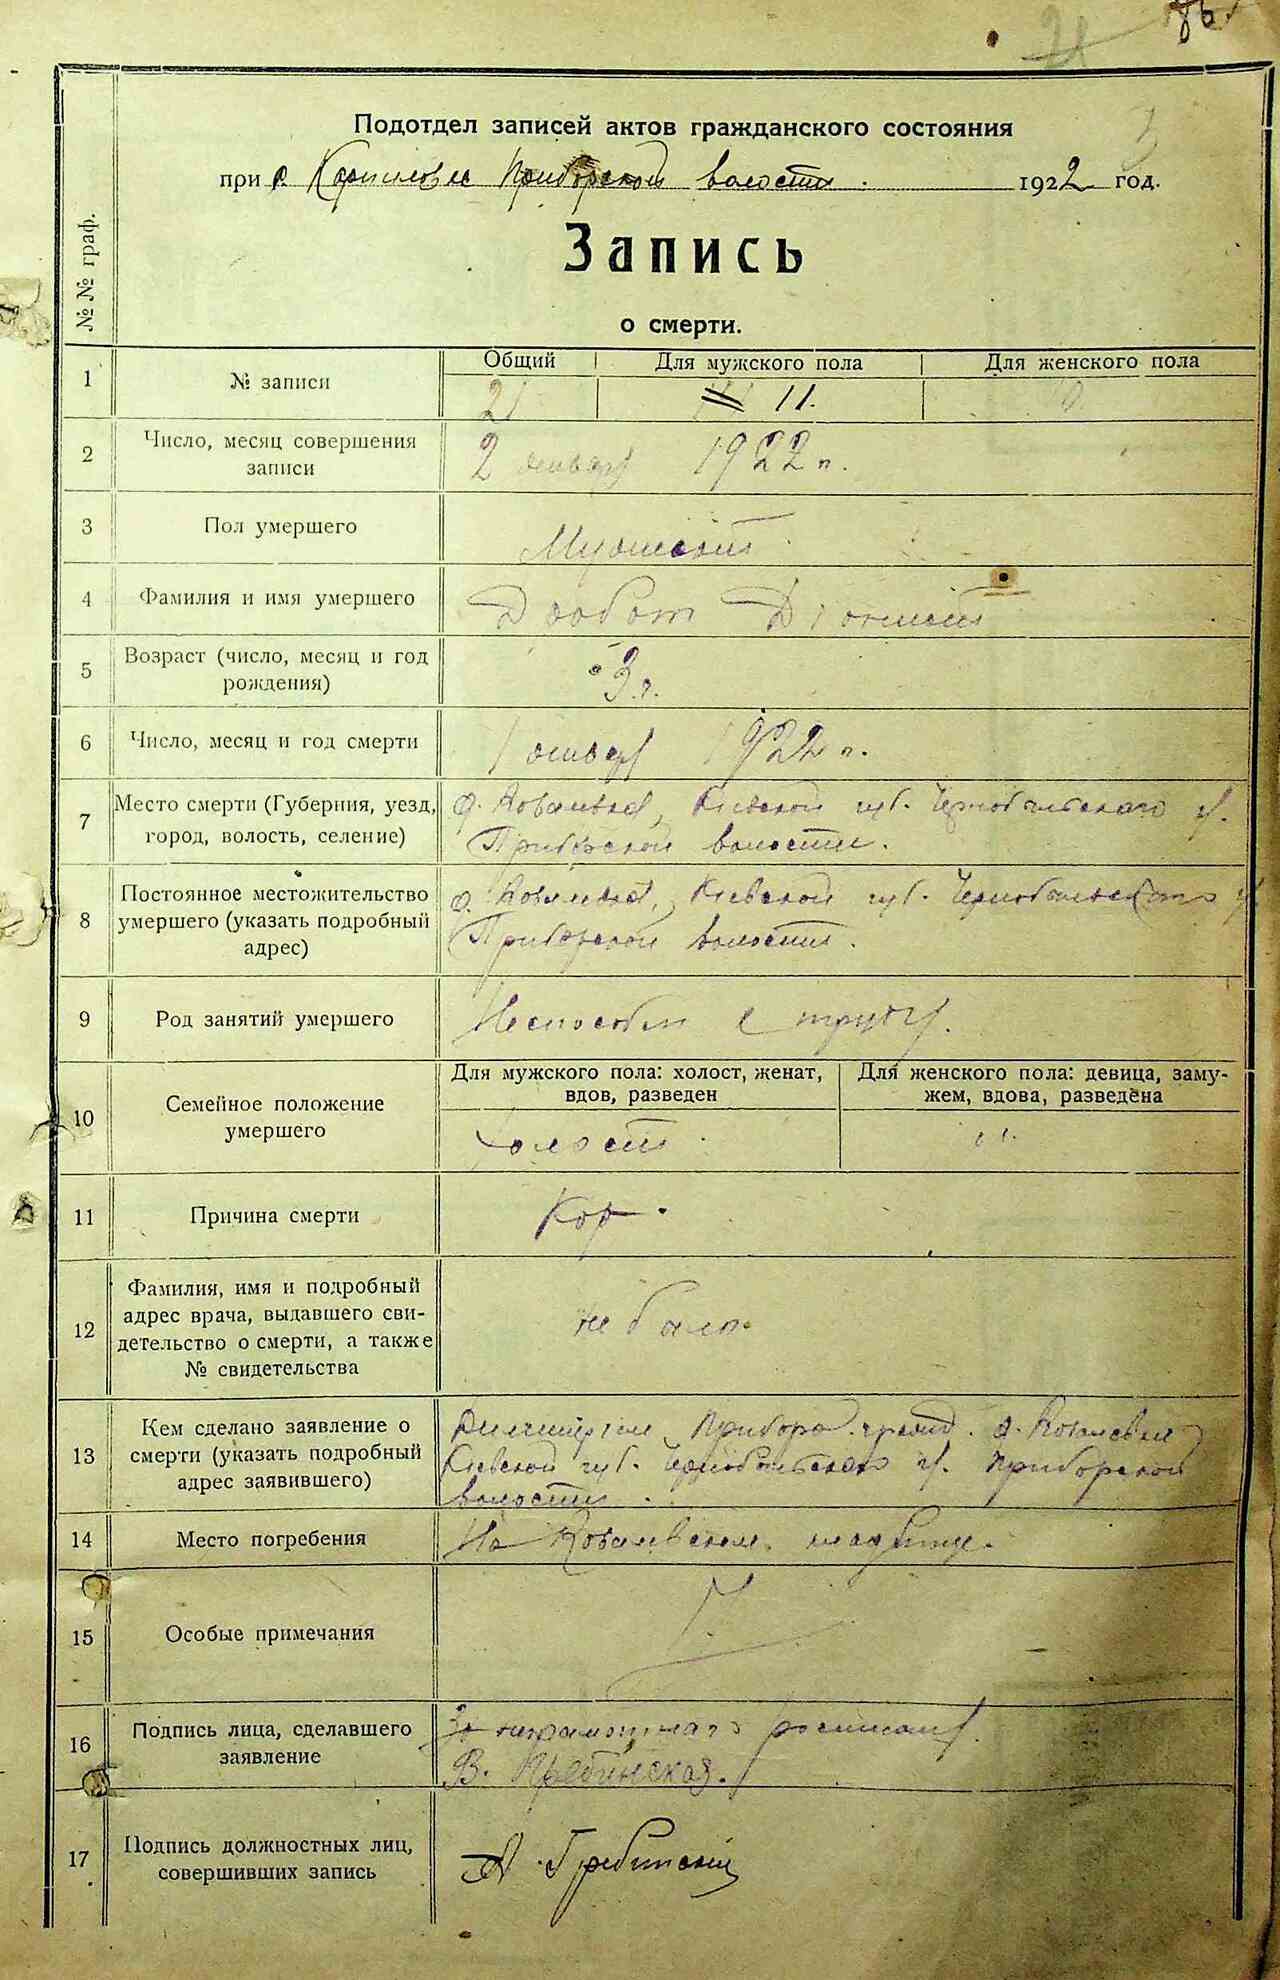 86.
Подотдел записей актов гражданского состояния
при с. Карпиловке Приборской волости. 1922 год.
№ № граф.
Запись
о смерти.
1 № записи Общий Для мужского пола Для женского пола
21 11.
2 Число, месяц совершения записи
2 январь 1922 г.
3 Пол умершего
Мужской
4 Фамилия и имя умершего
Дробот
5 Возраст (число, месяц и год рождения)
3 г.
6 Число, месяц и год смерти
1 январь 1922 г.
7 Место смерти (Губерния, уезд, город, волость, селение)
Киевской губ. Чернобыльского у.
Приборской волости.
8 Постоянное местожительство умершего (указать подробный адрес)
Киевской губ. Чернобыльского у.
Приборской волости.
9 Род занятий умершего
Неспособн к труду.
10 Семейное положение умершего
Для мужского пола: холост, женат, вдов, разведен
Для женского пола: девица, замужем, вдова, разведена
холост
11 Причина смерти
Кор.
12 Фамилия, имя и подробный адрес врача, выдавшего свидетельство о смерти, а также № свидетельства
не было.
13 Кем сделано заявление о смерти (указать подробный адрес заявившего)
Киевской губ. Чернобыльского у. Приборской
волости.
14 Место погребения
На кладбище.
15 Особые примечания
16 Подпись лица, сделавшего заявление
За неграмотного
В. Гребинская.
17 Подпись должностных лиц, совершивших запись
А. Гребинский